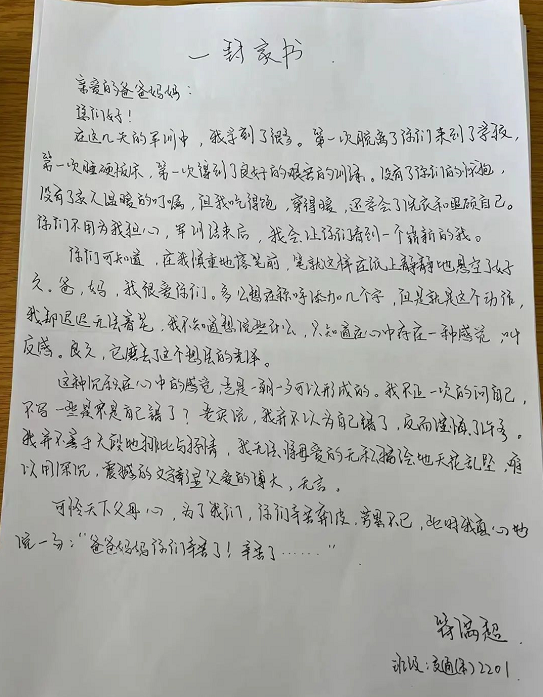 一封家书
亲爱的爸爸妈妈:
你们好!
在这几天的军训中,我学到了很多。第一次脱离了你们来到了学校,
第一次睡硬板床,第一次得到了良好的艰苦的训练。没有了你们的怀抱,
没有了家人温暖的叮嘱,但我吃得饱,穿得暖,还学会了洗衣和照顾自己。
你们不用为我担心,军训结束后,我会让你们看到一个崭新的我。
你们可知道,在我慎重地落笔前,笔就这样在纸上静静地悬空了好
久。爸,妈,我很爱你们。多么想在称呼添加几个字,但是就是这个动作,
我却迟迟无法着笔,我不知道想说些什么,只知道在心中存在一种感觉,叫
反感。良久,它磨去了这个想法的光泽。
这种沉积在心中的感觉,岂是一朝一夕可以形成的。我不止一次的问自己,
不写一些是不是自己错了?老实说,我并不以为自己错了,反而
我并不善于大段地排比与抒情,我无法将母爱的无私描绘地天花乱坠,难
以用深沉,震撼的文字彰显父爱的博大,无言。
可怜天下父母心,为了我们,你们辛苦奔波,劳累不已,此时我真心地
说一句:“爸爸妈妈你们辛苦了!辛苦了……”
符高超
班级:交通(本)2201